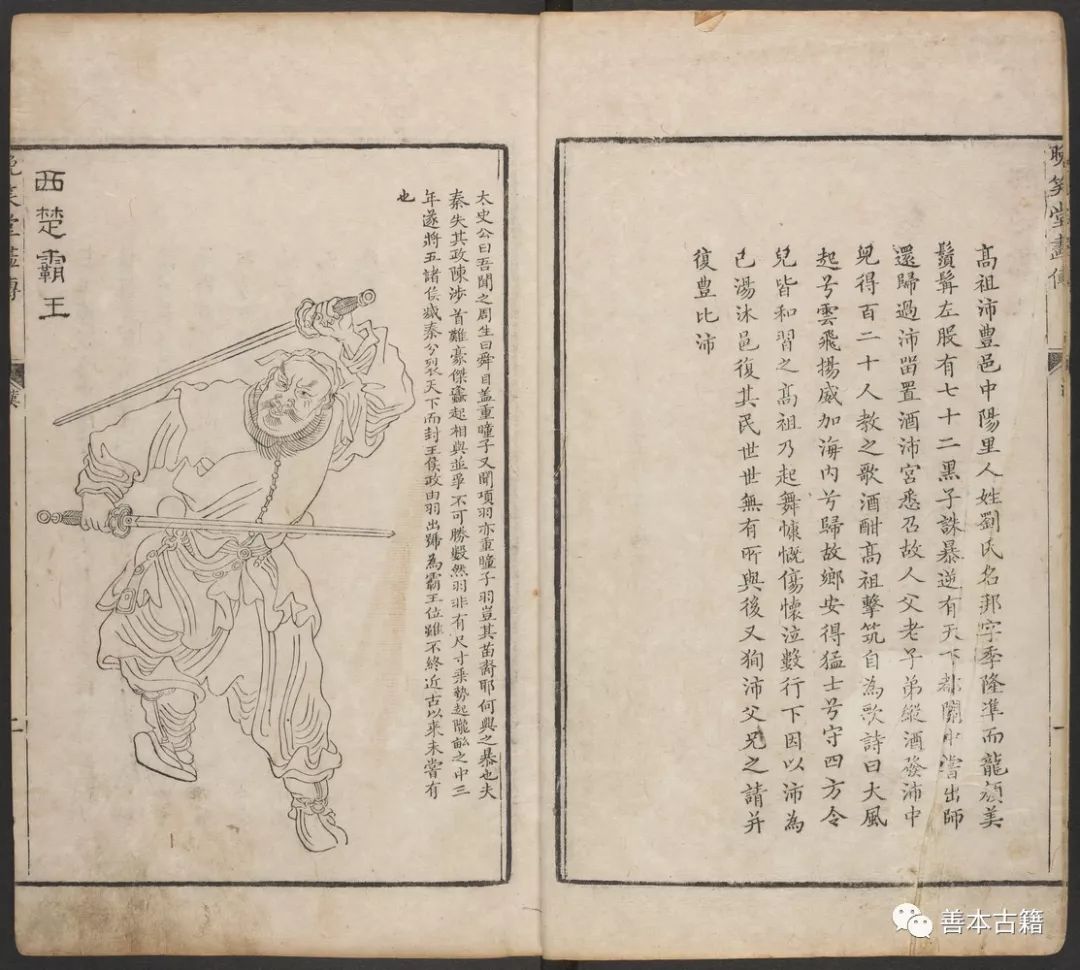 晚笑堂畫傳
高祖沛豊邑中陽里人姓劉氏名邦字季隆準而龍顔美
鬚髯左股有七十二黒子誅暴逆有天下都關中嘗出師
還歸過沛留置酒沛宮悉召故人父老子弟縱酒發沛中
兒得百二十人教之歌酒酣高祖擊筑自為歌詩曰大風
起兮雲飛揚威加海内兮歸故鄉安得猛士兮守四方令
兒皆和習之高祖乃起舞慷慨傷懷泣數行下因以沛為
己湯沐邑復其民世世無有所與後又狥沛父兄之請并
復豊比沛
太史公曰吾聞之周生曰舜目盖重瞳子又聞項羽亦重瞳子羽豈其苗裔耶何興之暴也夫
秦失其政陳渉首難豪傑蠭起相與並爭不可勝數然羽非有尺寸乘勢起隴畝之中三
年遂將五諸侯滅秦分裂天下而封王侯政由羽出號為霸王位雖不終近古以來未嘗有
也
西楚霸王
晚笑堂畫傳
漢
善本古籍